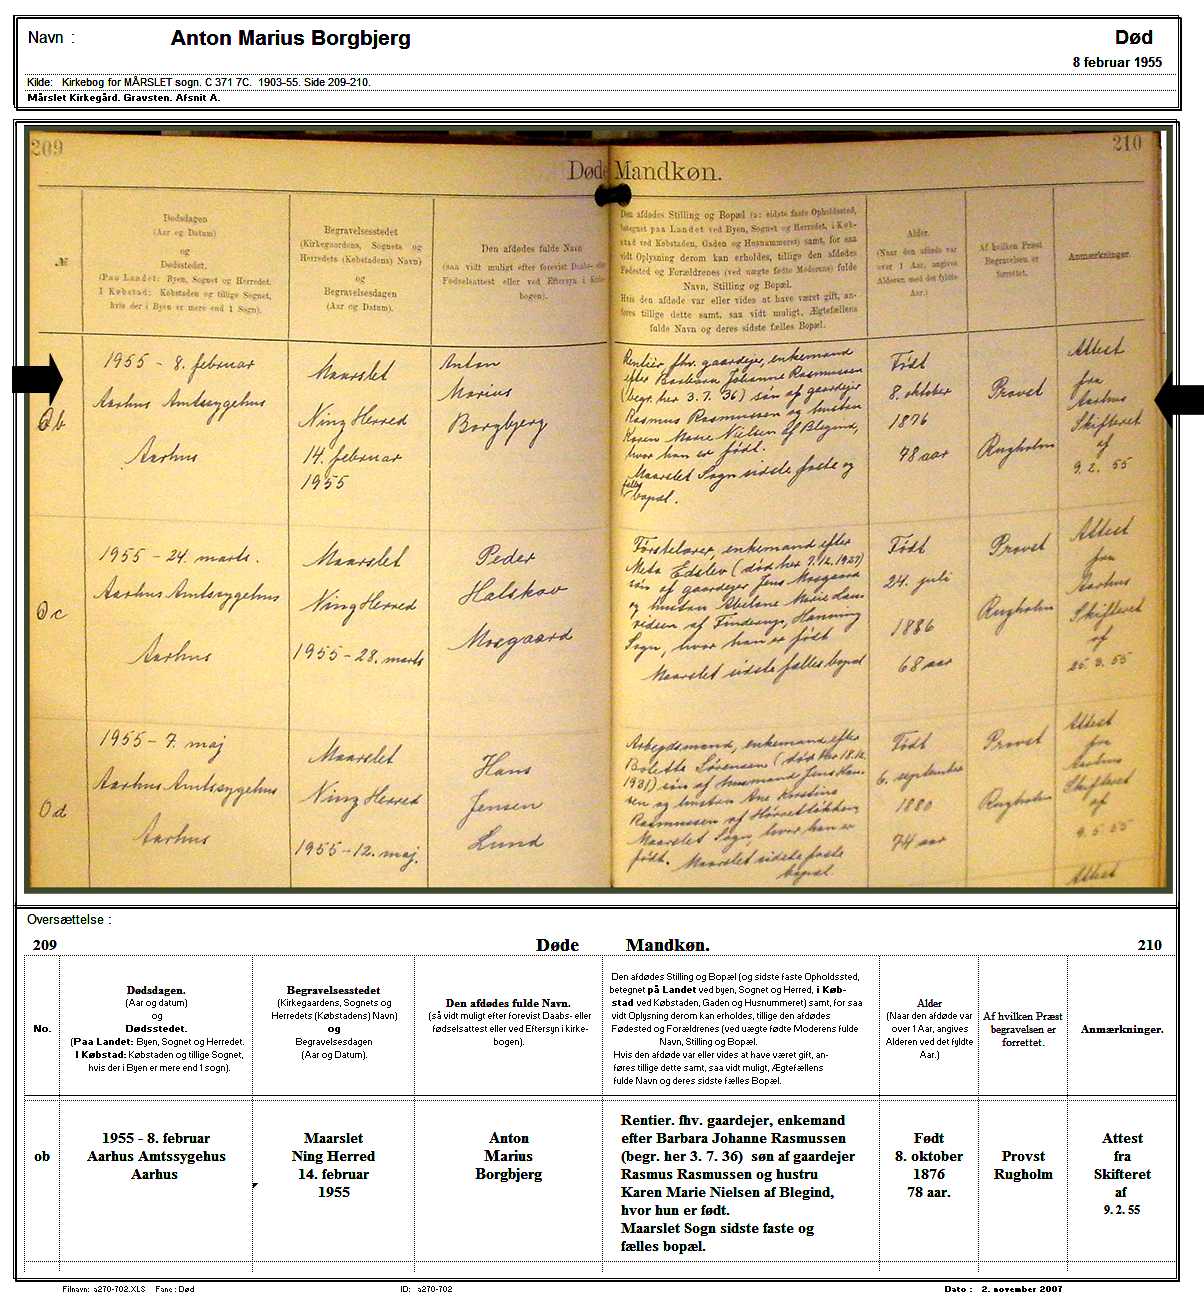 Navn :
Anton Marius Borgbjerg
Død
8 februar 1955
Kilde: Kirkebog for MÅRSLET sogn. C 371 7C. 1903-55. Side 209-210.
Mårslet Kirkegård. Gravsten. Afsnit A.
209
210
Døde Mandkøn.
№
Dødsdagen
(Aar og Datum)
og
Dødsstedet.
(Paa Landet: Byen, Sognet og Herredet.
I Købstad: Købstaden og tillige Sognet,
hvis der i Byen er mere end 1 Sogn).
Begravelsesstedet
(Kirkegaardens, Sognets og
Herredets (Købstadens) Navn)
og
Begravelsesdagen
(Aar og Datum).
Den afdødes fulde Navn
(saa vidt muligt efter forevist Daabs- eller
Fødselsattest eller ved Eftersyn i Kirke-
bogen).
Den afdødes Stilling og Bopæl (o: sidste faste Opholdssted,
betegnet paa Landet ved Byen, Sognet og Herredet, i Køb-
stad ved Købstaden, Gaden og Husnummeret) samt, for saa
vidt Oplysning derom kan erholdes, tillige den afdødes
Fødested og Forældrenes (ved uægte fødte Moderens) fulde
Navn, Stilling og Bopæl.
Hvis den afdøde var eller vides at have været gift, an-
føres tillige dette samt, saa vidt muligt, Ægtefællens
fulde Navn og deres sidste fælles Bopæl.
Alder.
(Naar den afdøde var
over 1 Aar, angives
Alderen med det fyldte
Aar.)
Af hvilken Præst
Begravelsen er
forrettet.
Anmærkninger.
Ob
1955 - 8. februar
Aarhus Amtssygehus
Aarhus
Maarslet
Ning Herred
14. februar
1955
Anton
Marius
Borgbjerg
Rentier, fhv. gaardejer, enkemand
efter Barbara Johanne Rasmussen
(begr. her 3. 7. 36) søn af gaardejer
Rasmus Rasmussen og hustru
Karen Marie Nielsen af Blegind,
hvor han er født.
Maarslet Sogn sidste faste og
fælles bopæl.
Født
8. oktober
1876
78 aar
Provst
Rugholm
Attest
fra
Aarhus
Skifteret
af
9. 2. 55
Oc
1955 - 24. marts.
Aarhus Amtssygehus
Aarhus
Maarslet
Ning Herred
1955 - 28. marts
Peder
Halskov
Mosgaard
Førstelærer, enkemand efter
Meta Edslev (død her 7.12.1927)
søn af gaardejer Jens Mosgaard
og hustru Abelone Marie Dav-
vidsen af Finderup, Hanning
Sogn, hvor han er født
Maarslet sidste fælles bopæl
Født
24. juli
1886
68 aar
Provst
Rugholm
Attest
fra
Aarhus
Skifteret
af
25. 3. 55
Od
1955 - 7. maj
Aarhus Amtssygehus
Aarhus
Maarslet
Ning Herred
1955 - 12. maj.
Hans
Jensen
Lund
Arbejdsmand, enkemand efter
Bolette Sørensen (død her 18.12.
1931) søn af husmand Jens Han-
sen og hustru Ane Kirstine
Rasmussen af
Maarslet Sogn, hvor han er
født. Maarslet sidste faste
bopæl
Født
6. september
1880
74 aar
Provst
Rugholm
Attest
fra
Aarhus
Skifteret
af
9. 5. 55
Attest
Oversættelse :
209
Døde Mandkøn.
210
No.
Dødsdagen.
(Aar og datum)
og
Dødsstedet.
(Paa Landet: Byen, Sognet og Herredet.
I Købstad: Købstaden og tillige Sognet,
hvis der i Byen er mere end 1 sogn).
Begravelsesstedet
(Kirkegaardens, Sognets og
Herredets (Købstadens) Navn)
og
Begravelsesdagen
(Aar og Datum).
Den afdødes fulde Navn.
(så vidt muligt efter forevist Daabs- eller
fødselsattest eller ved Eftersyn i kirke-
bogen).
Den afdødes Stilling og Bopæl (og sidste faste Opholdssted,
betegnet på Landet ved byen, Sognet og Herred, i Køb-
stad ved Købstaden, Gaden og Husnummeret) samt, for saa
vidt Oplysning derom kan erholdes, tillige den afdødes
Fødested og Forældrenes (ved uægte fødte Moderens fulde
Navn, Stilling og Bopæl.
Hvis den afdøde var eller vides at have været gift, an-
føres tillige dette samt, saa vidt muligt, Ægtefællens
fulde Navn og deres sidste fælles Bopæl.
Alder
(Naar den afdøde var
over 1 Aar, angives
Alderen ved det fyldte
Aar.)
Af hvilken Præst
begravelsen er
forrettet.
Anmærkninger.
ob
1955 - 8. februar
Aarhus Amtssygehus
Aarhus
Maarslet
Ning Herred
14. februar
1955
Anton
Marius
Borgbjerg
Rentier. fhv. gaardejer, enkemand
efter Barbara Johanne Rasmussen
(begr. her 3. 7. 36) søn af gaardejer
Rasmus Rasmussen og hustru
Karen Marie Nielsen af Blegind,
hvor hun er født.
Maarslet Sogn sidste faste og
fælles bopæl.
Født
8. oktober
1876
78 aar.
Provst
Rugholm
Attest
fra
Skifteret
af
9. 2. 55
Filnavn: a270-702.XLS Fane: Død
ID: a270-702
Dato : 2. november 2007